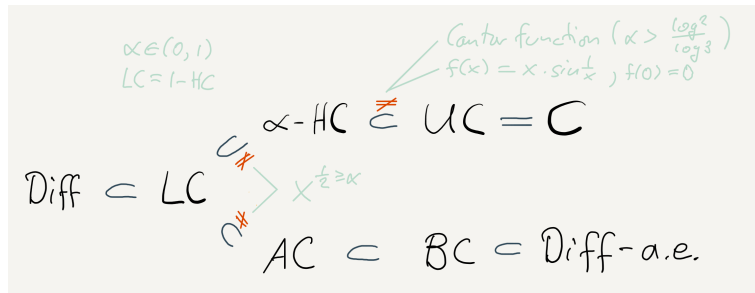 α∈(0,1)
LC=1-HC
Cantor function (α > log2/log3)
f(x) = x·sin 1/x , f(0)=0
α-HC ⊊ UC = C
Diff ⊂ LC
x^{1/2 ≥ α}
AC ⊂ BC ⊂ Diff-a.e.